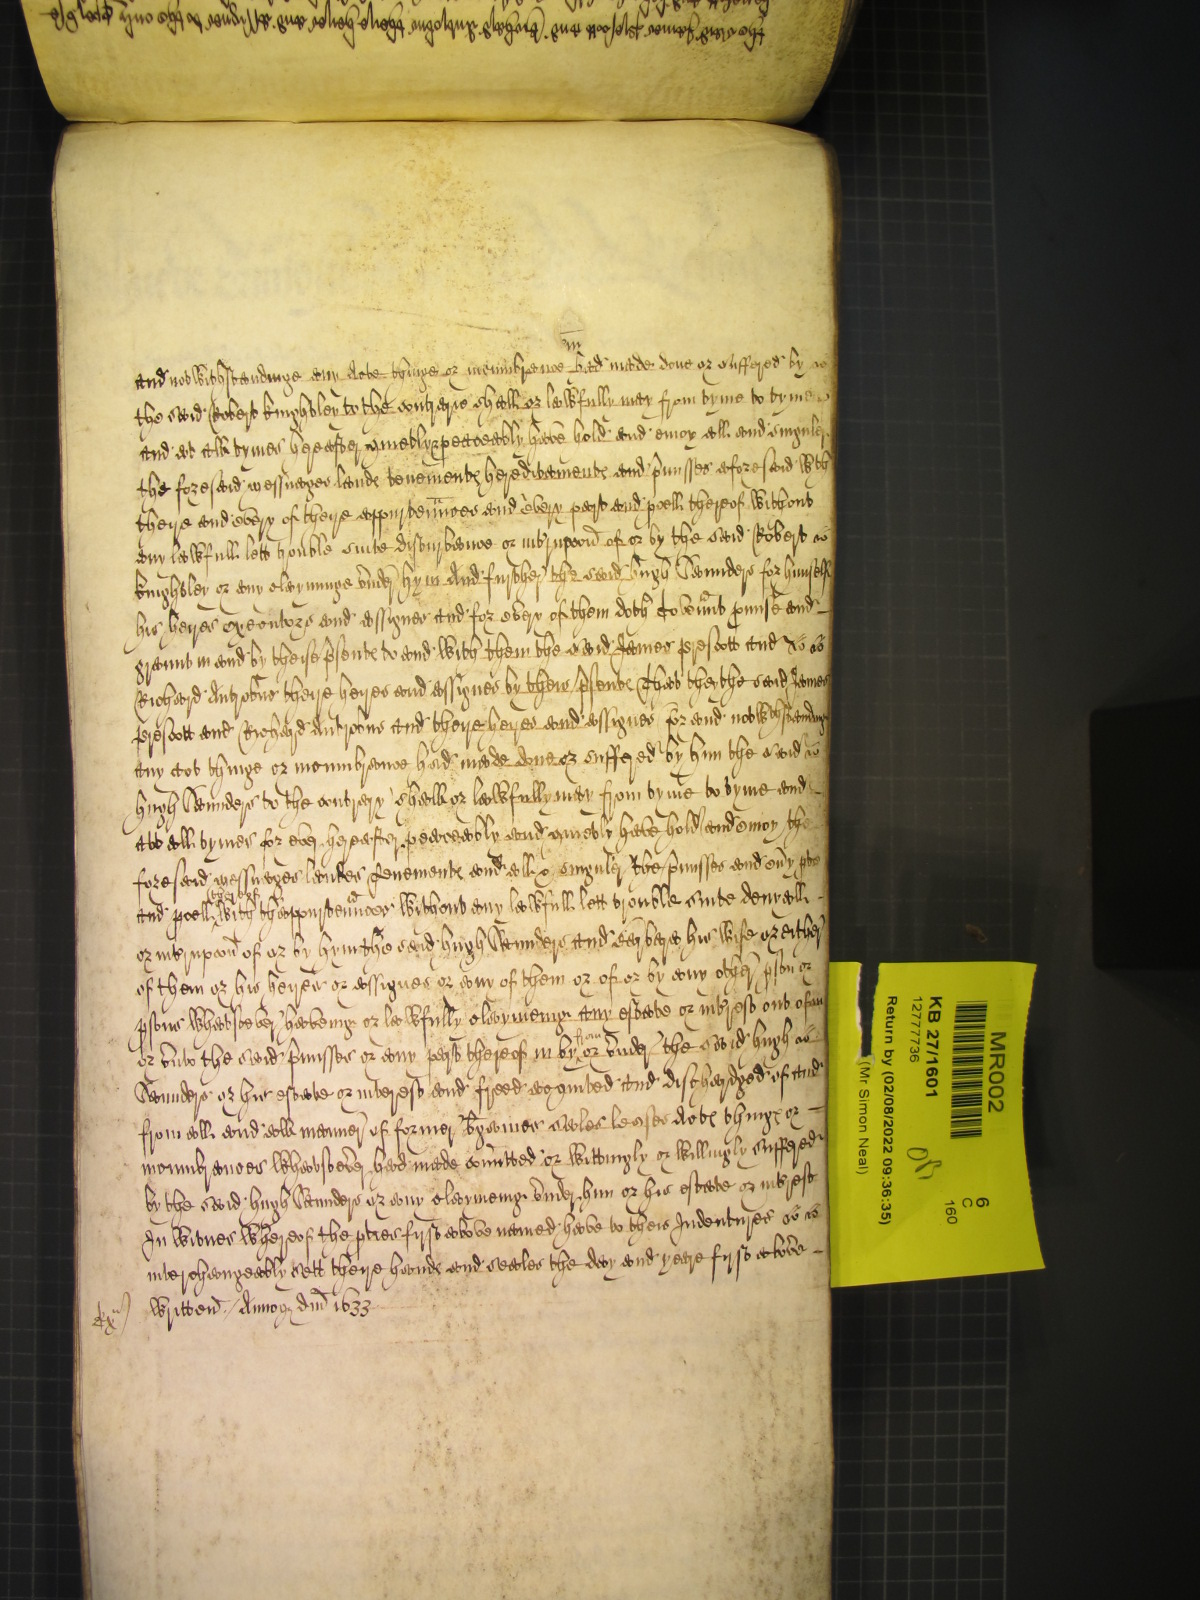 in
and notwithstandinge any Acte thinge or incumbrance had made done or suffered by
the said Robert Knightsley to the contrarie shall or lawfully may from tyme to tyme
and at all tymes hereafter quietly & peaceably have hold and enioy all and singuler
the foresaid messuages landes tenementes hereditamentes and pmisses aforesaid wth
there and every of there appurtennces and every part and pcell thereof without
any lawfull lett trouble suite disturbance or intrupcon of or by the said Robert
Knightsley or any clayminge under hym And further the said hugh Saunders for himself
his heires executors and assignes and for every of them doth Covennt pmise and
graunt in and by theise psentes to and with them the said James prescott and
Richard Antrobus there heires and assignes by theis psentes That they the said James
prescott and Richard Antrobus and there heires and assignes for and notwthstandinge
any act thinge or incumbrance had made done or suffered by him the said
hugh Saunders to the contrary shall or lawfully may from tyme to tyme and
att all tymes for ever hereafter peaceably and quietly have hold and enioy the
foresaid messuages landes Tenementes and all & singuler the pmisses and every pte
and pcell thereof with thappurtennces without any lawfull lett trouble suite denyall
or intrupcon of or by hym the said hugh Saunders and Barbara his wife or either
of them or his heires or assignes or any of them or of or by any other pson or
psons whatsoever haveing or lawfully claymeing any estate or intrest out of in
or unto the said pmisses or any part thereof in by from or under the said hugh
Saunders or his estate or interest and freed acquited and discharged of and
from all and all manner of former Bgaines Sales leases Actes thinges or
incumbrances whatsoever had made comitted or wittingly or willingly suffered
by the said hugh Saunders or any claymeing under him or his estate or intrest
In witnes whereof the pties first above named have to theis Indentures
interchangeably sett there handes and seales the day and yeare first above
written / Annoq dni 1633
MR002
6
C
160
KB 27/1601
12777736
Return by (02/08/2022 09:36:35)
(Mr Simon Neal)